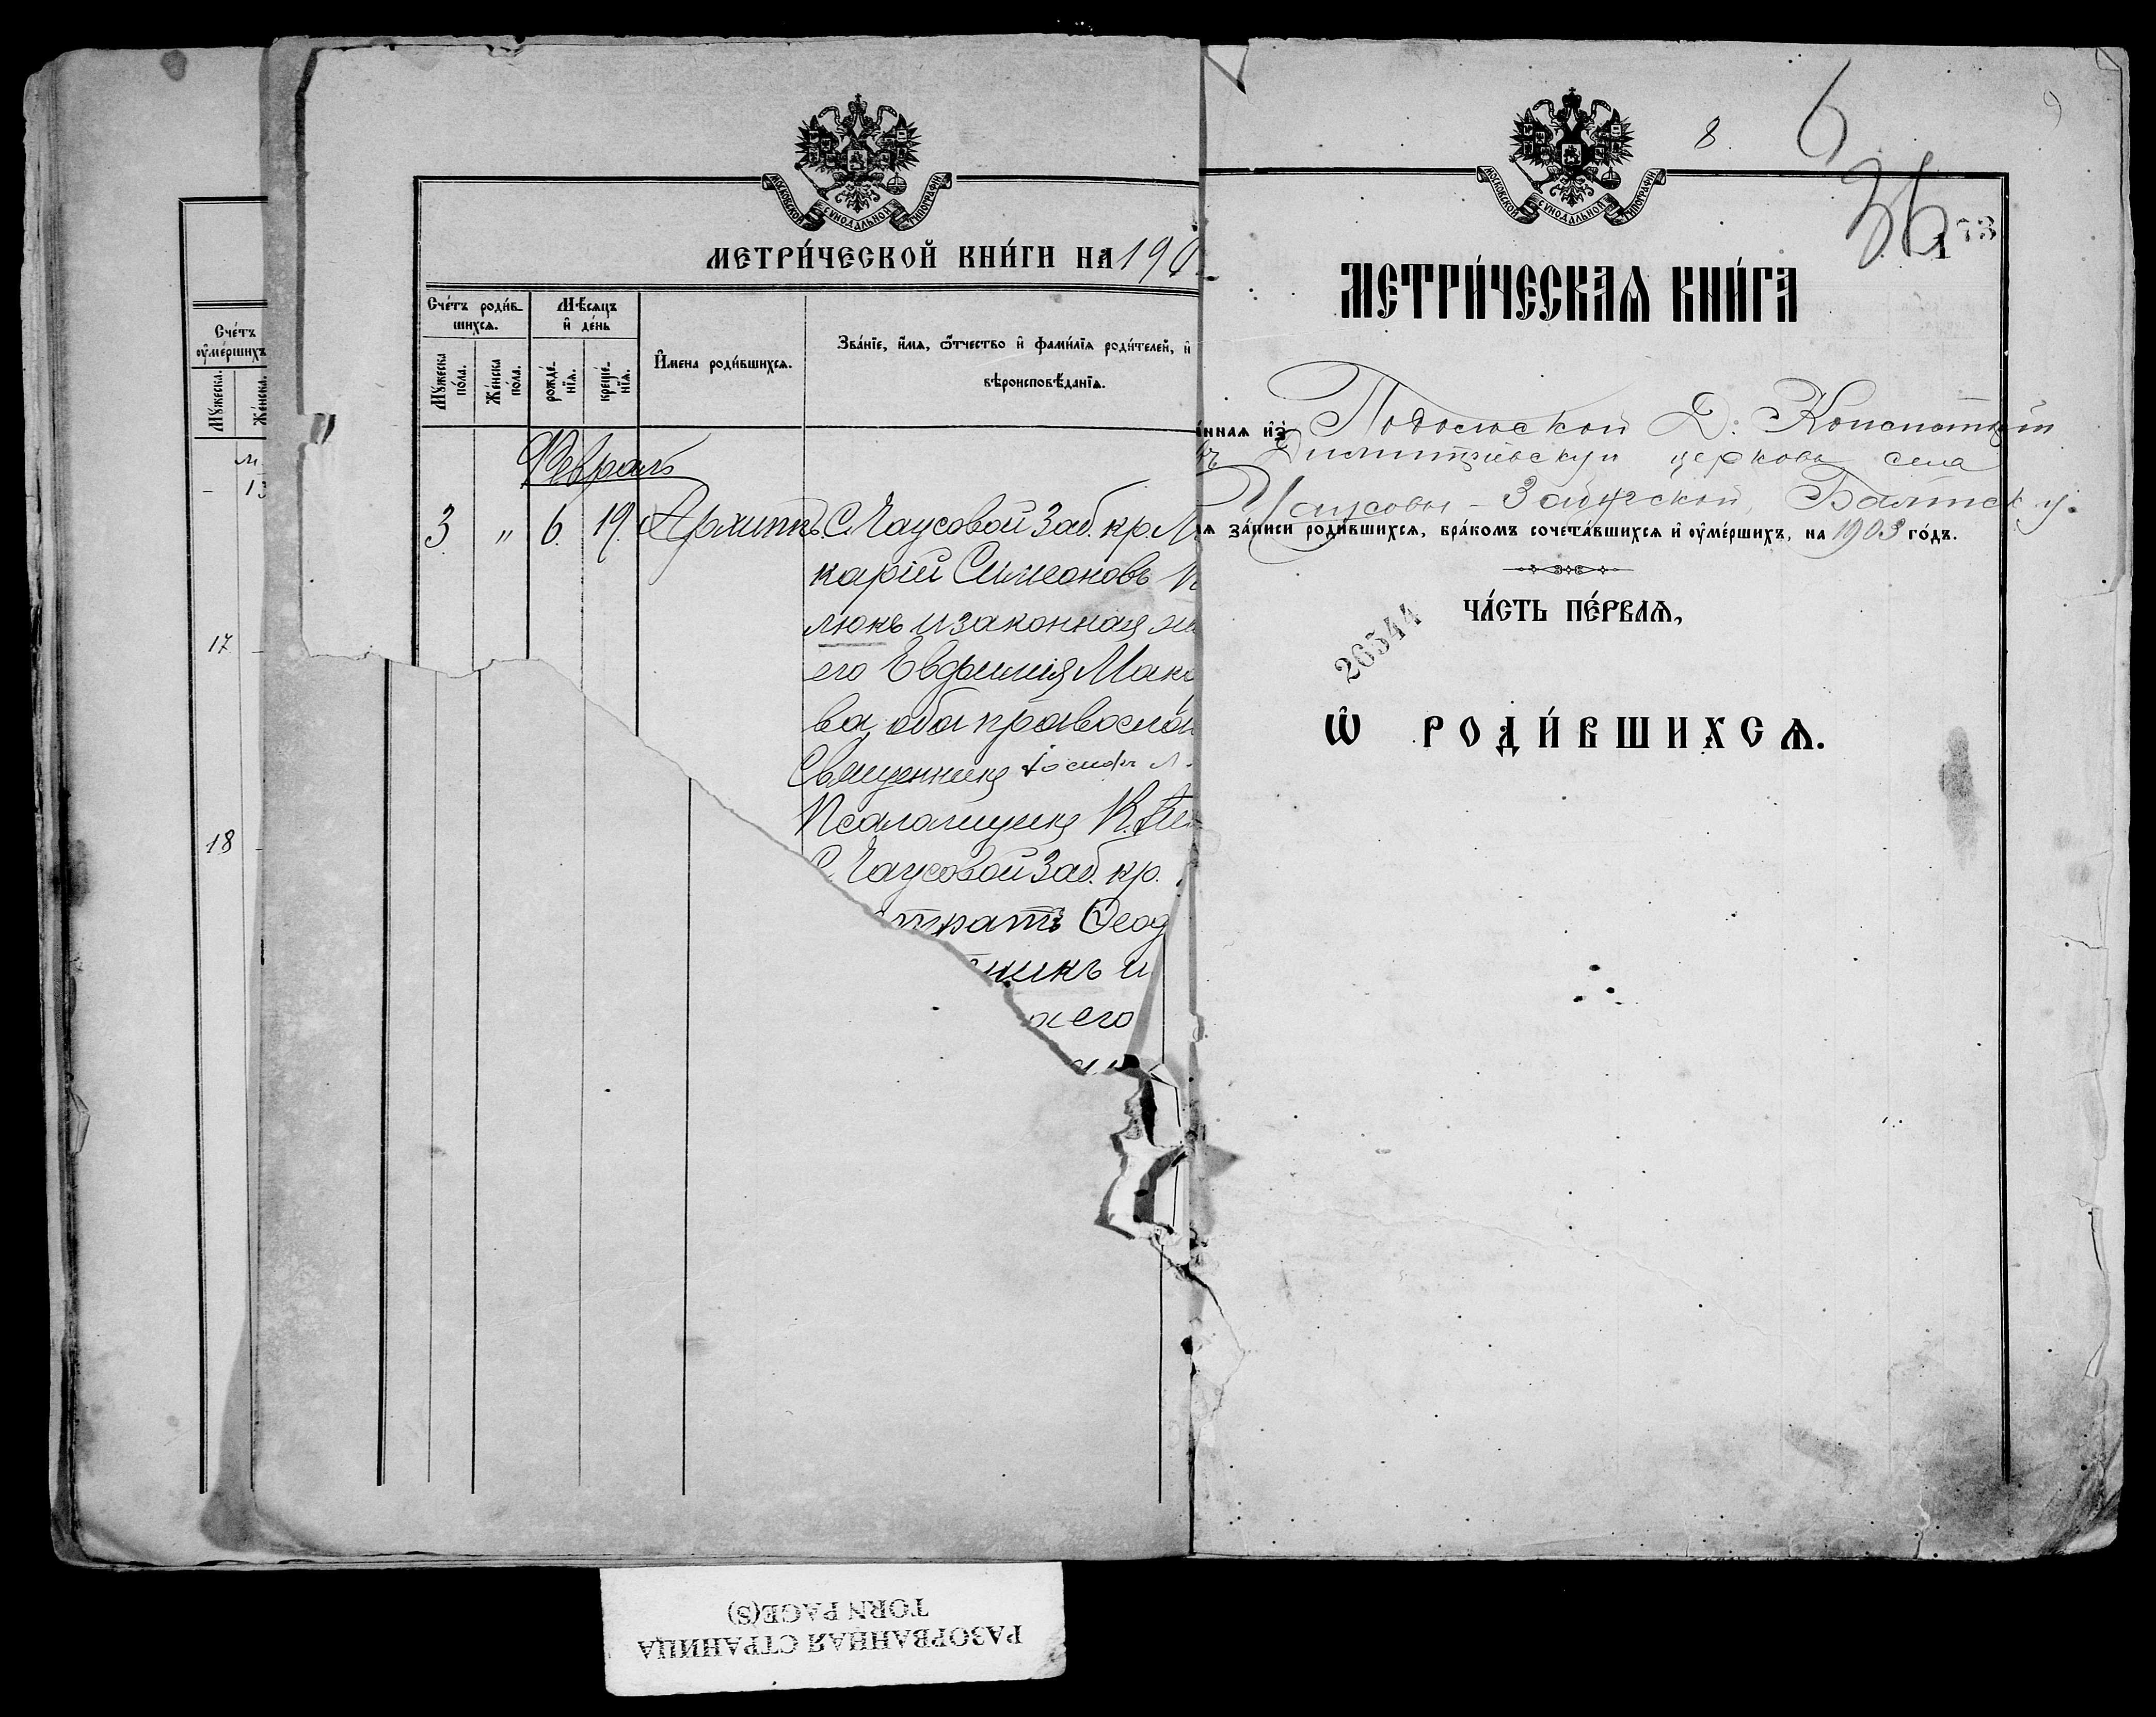 Счетъ
оумершихъ
Мужеска.
Женска.
17
18
МОСКОВСКОЙ СУНОДАЛЬНОЙ ТИПОГРАФІИ
МЕТРИ́ЧЕСКОЙ КНИ́ГИ НА 190
Сче́тъ роди́в-
шихся.
Мѣсяцъ
и де́нь
Му́жеска
по́ла.
Же́нска
по́ла.
рожде́-
нія.
креще́-
нія.
Имена роди́вшихся.
Зва́ніе, и́мя, ѿтчество и фами́лія роди́телей, и
вѣроисповѣданія.
Февраль
3. " 6. 19. Архиппъ С. Чаусовой Заб. кр. М
карій Симеоновъ
люкъ и законная
его Евфимія Мака
ва, оба православ
Священникъ Іосифъ
Псаломщикъ К.
С. Чаусовой Заб. кр.
тратъ Ѳеод
никъ и
его
8. 6 9
36
173
МОСКОВСКОЙ СУНОДАЛЬНОЙ ТИПОГРАФІИ
МЕТРИ́ЧЕСКАѦ КНИ́ГА
нная изъ Подольской Д. Консисторіи
въ Димитріевскую церковь села
Чаусовой-Забужской, Балтск у.
я за́писи роди́вшихся, бра́комъ сочета́вшихся и оуме́ршихъ, на 1903 го́дъ.
ЧА́СТЬ ПЕ́РВАѦ,
26544
Ѡ РОДИ́ВШИХСѦ.
РАЗОРВАННАЯ СТРАНИЦА
TORN PAGE(S)